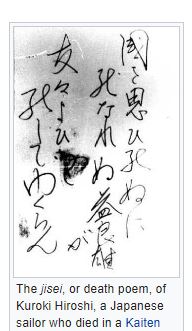 國を思ひ死ぬに
死なれぬ益良雄が
友々よびつ
死してゆくらん
The jisei, or death poem, of
Kuroki Hiroshi, a Japanese
sailor who died in a Kaiten